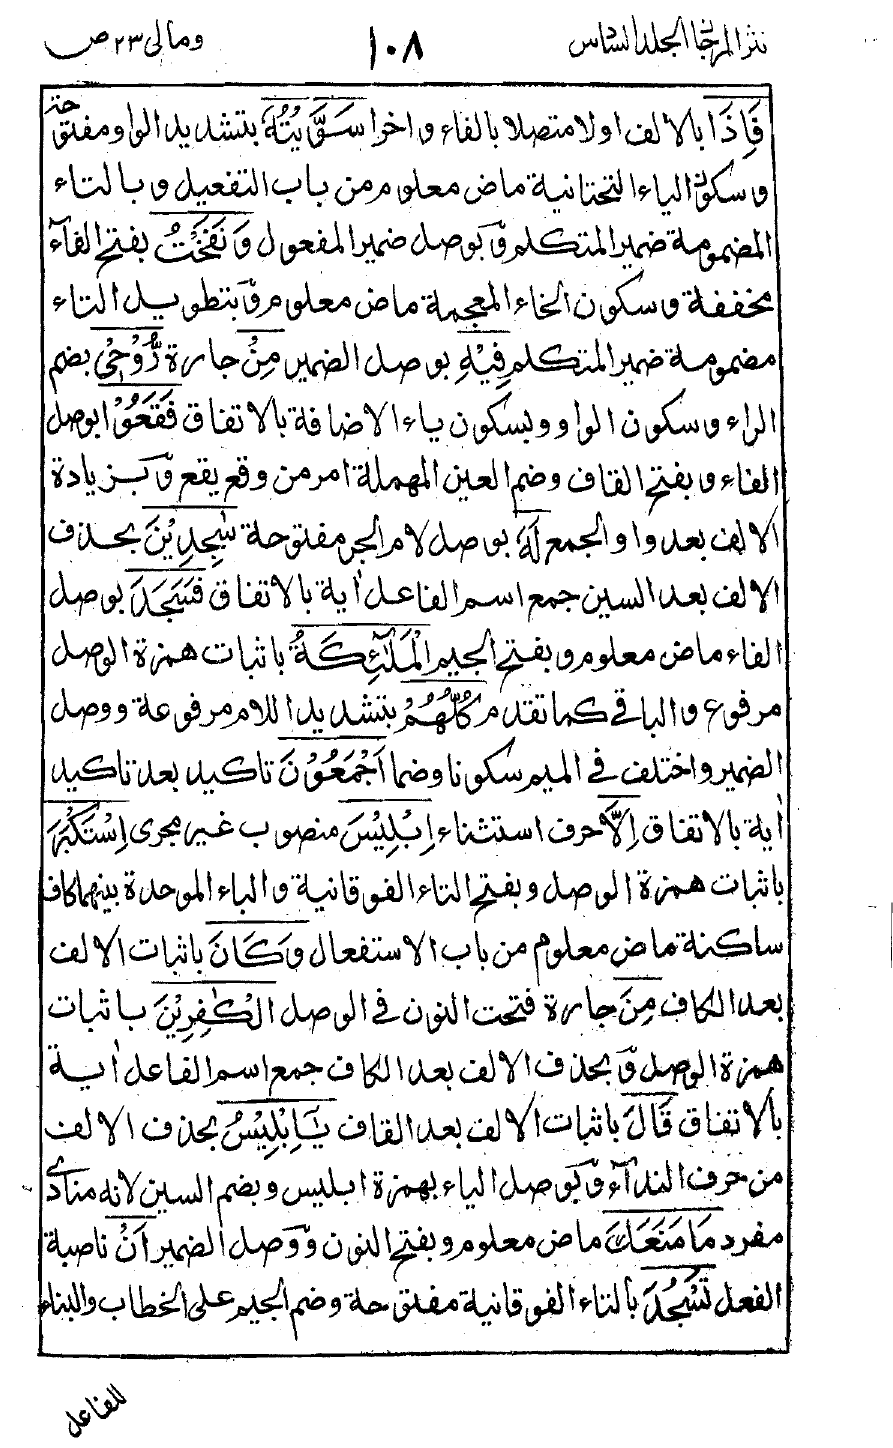 نثر المرجان الجلد السادس
١٠٨
ومالى ٢٣ ص
فَاِذَا بالالف اولا متصلا بالفاء واخرا سَوَّيْتُهُ بتشديد الواو مفتوحة
وسكون الياء التحتانية ماض معلوم من باب التفعيل وبالتاء
المضمومة ضمير المتكلم وبوصل ضمير المفعول وَنَفَخْتُ بفتح الفاء
مخففة وسكون الخاء المعجمة ماض معلوم وبتطويل التاء
مضمومة ضمير المتكلم فِيْهِ بوصل الضمير مِنْ جارة رُّوْحِيْ بضم
الراء وسكون الواو وبسكون ياء الاضافة بالاتفاق فَقَعُوْا بوصل
الفاء وبفتح القاف وضم العين المهملة امر من وقع يقع وبزيادة
الالف بعد واو الجمع لَهٗ بوصل لام الجر مفتوحة سٰجِدِيْنَ بحذف
الالف بعد السين جمع اسم الفاعل اٰية بالاتفاق فَسَجَدَ بوصل
الفاء ماض معلوم وبفتح الجيم الْمَلٰٓئِكَةُ باثبات همزة الوصل
مرفوع والباقى كما تقدم كُلُّهُمْ بتشديد اللام مرفوعة ووصل
الضمير واختلف فى الميم سكونا وضما اَجْمَعُوْنَ تاكيد بعد تاكيد
اٰية بالاتفاق اِلَّا حرف استثناء اِبْلِيْسَ منصوب غير مجرى اِسْتَكْبَرَ
باثبات همزة الوصل وبفتح التاء الفوقانية والباء الموحدة بينهما كاف
ساكنة ماض معلوم من باب الاستفعال وَكَانَ باثبات الالف
بعد الكاف مِنَ جارة فتحت النون فى الوصل الْكٰفِرِيْنَ باثبات
همزة الوصل وبحذف الالف بعد الكاف جمع اسم الفاعل اٰية
بالاتفاق قَالَ باثبات الالف بعد القاف يٰٓاِبْلِيْسُ بحذف الالف
من حرف النداء وبوصل الياء بهمزة ابليس وبضم السين لانه منادى
مفرد مَا مَنَعَكَ ماض معلوم وبفتح النون ووصل الضمير اَنْ ناصبة
الفعل تَسْجُدَ بالتاء الفوقانية مفتوحة وضم الجيم على الخطاب والبناء
للفاعل